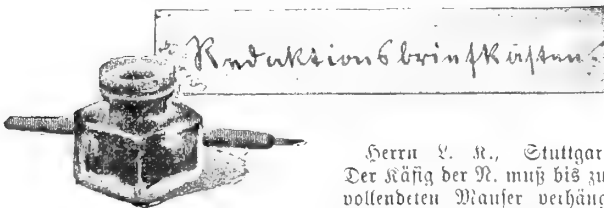 Redaktionsbriefkasten
Herrn L. K., Stuttgar
Der Käfig der N. muß bis zu
vollendeten Mauser verhäng